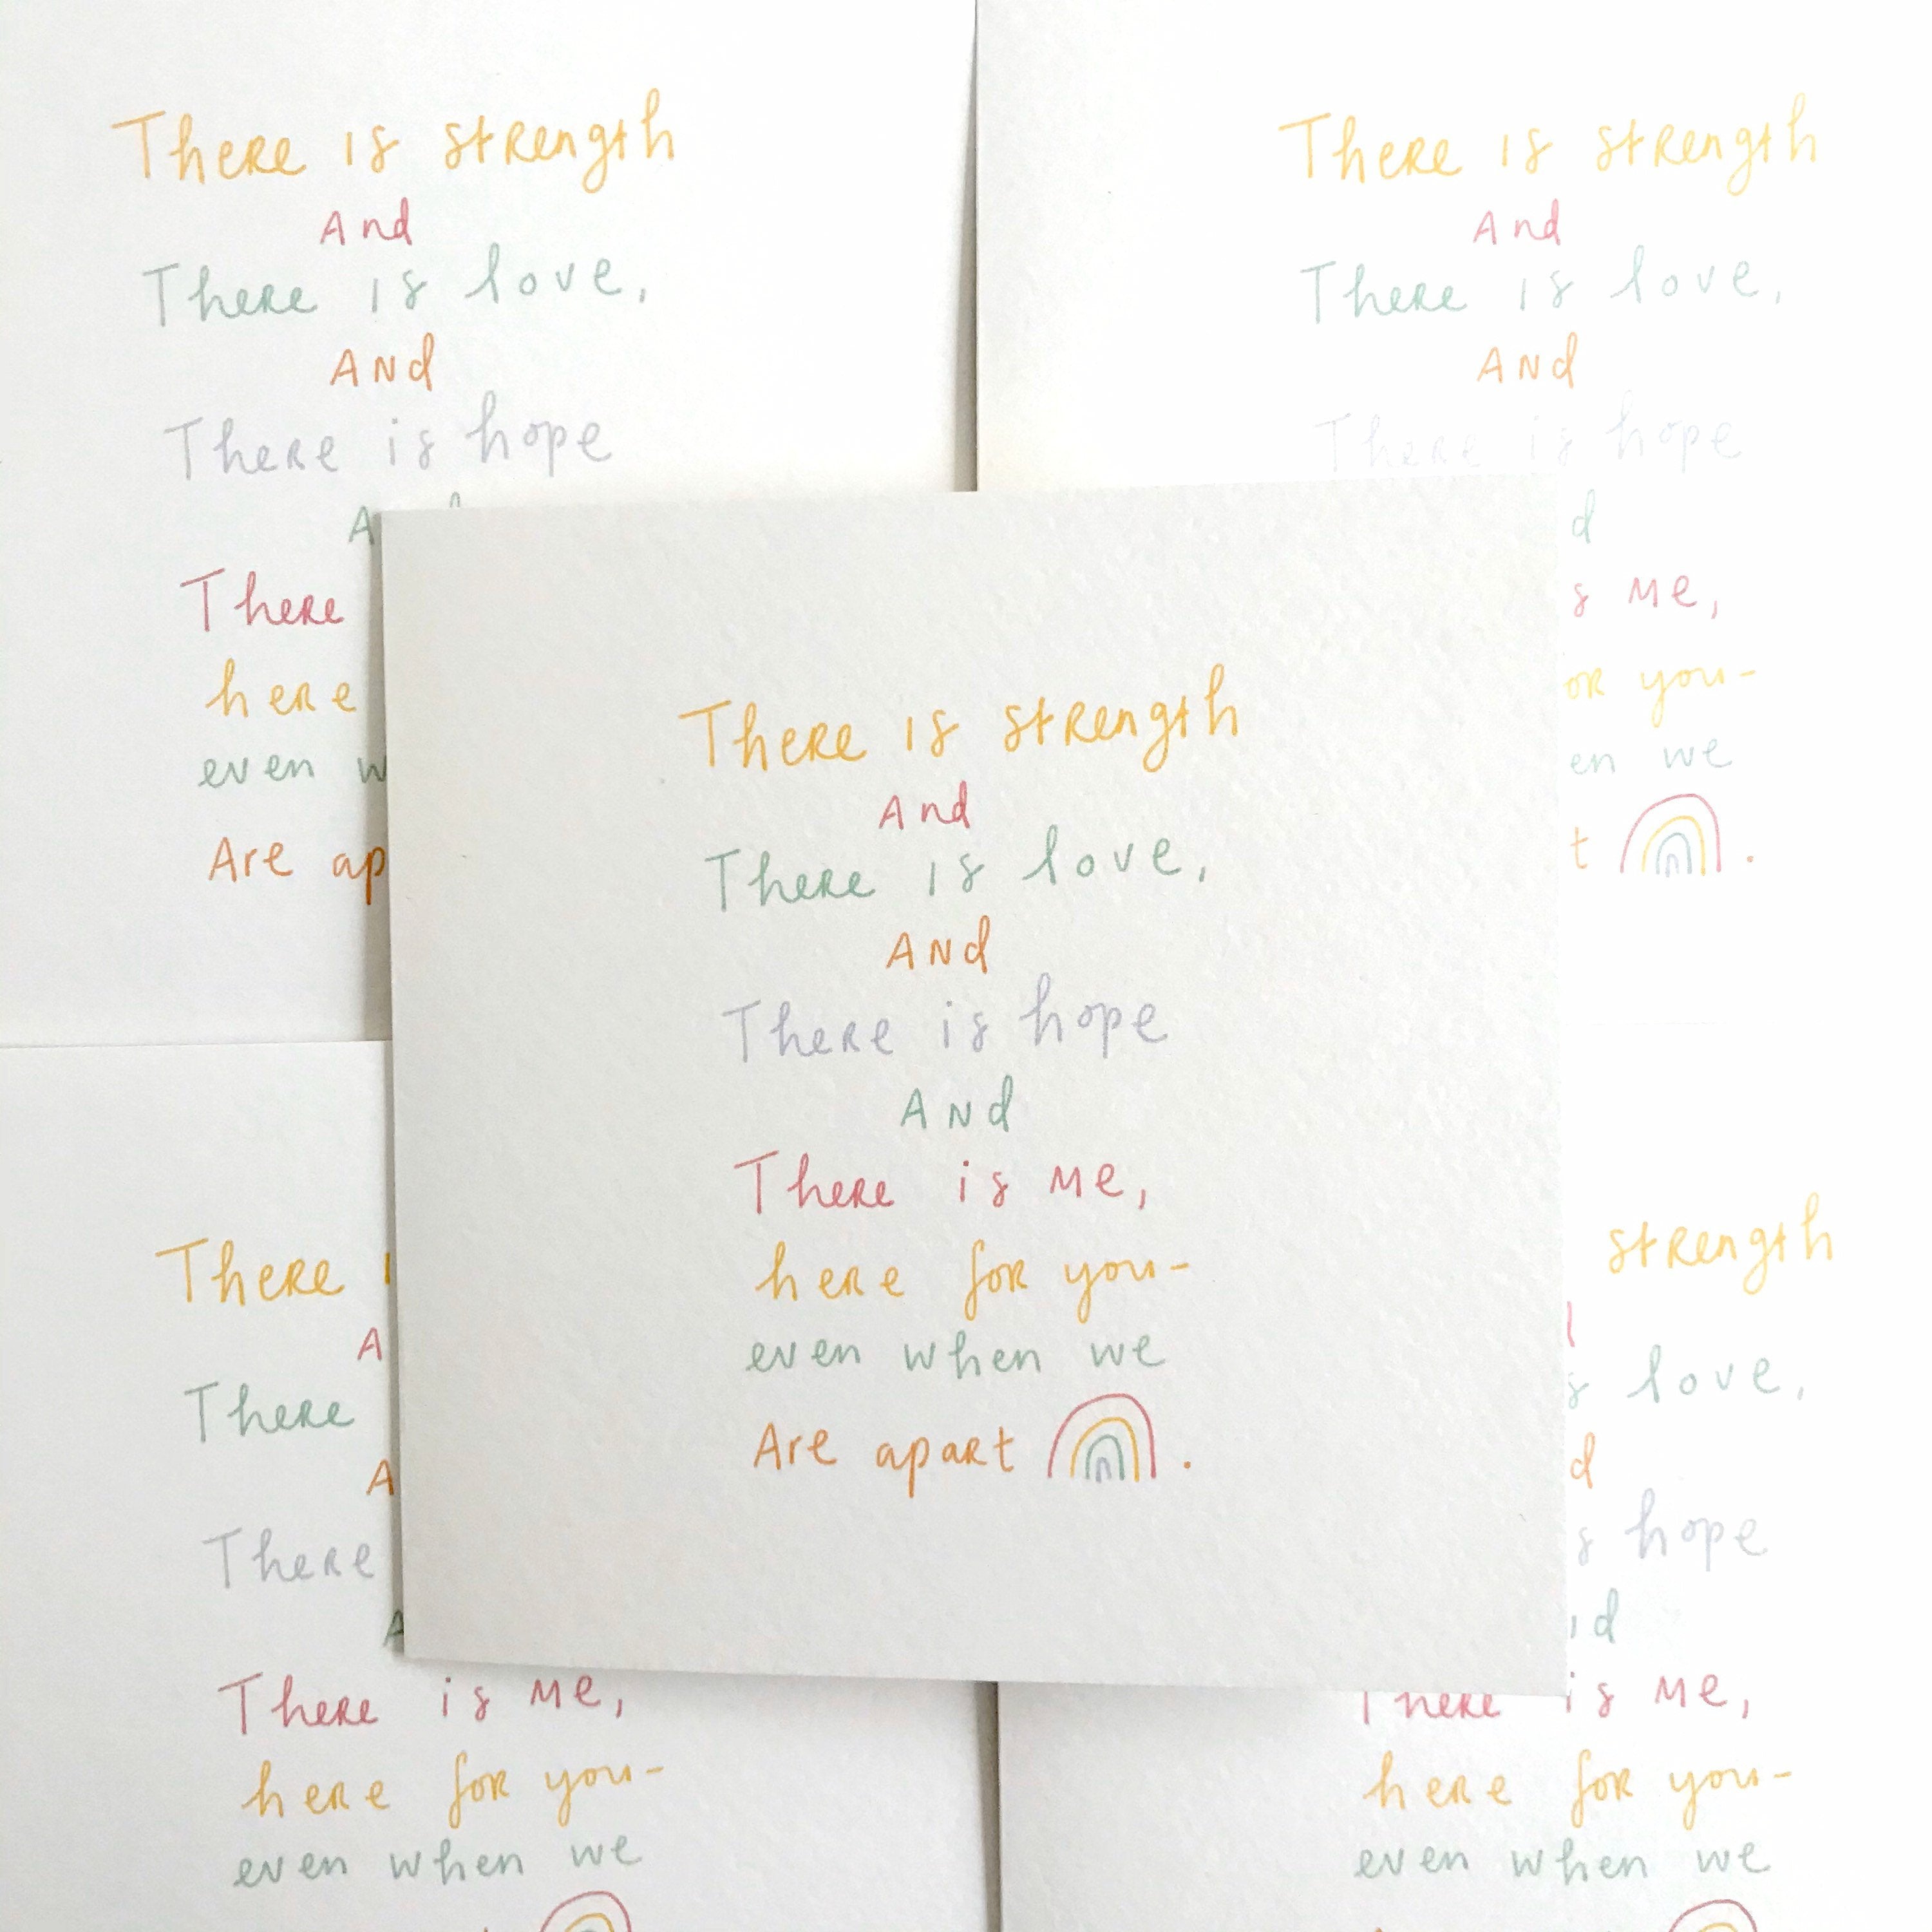 There is strength
And
There is love,
And
There is hope
A
There
here
even w
Are ap
There is strength
And
There is love,
And
There is hope
d
s me,
or you-
en we
t
There is strength
And
There is love,
And
There is hope
And
There is me,
here for you-
even when we
Are apart .
There
A
There
A
There
A
There is me,
here for you-
even when we
strength
s love,
d
s hope
nd
There is me,
here for you-
even when we